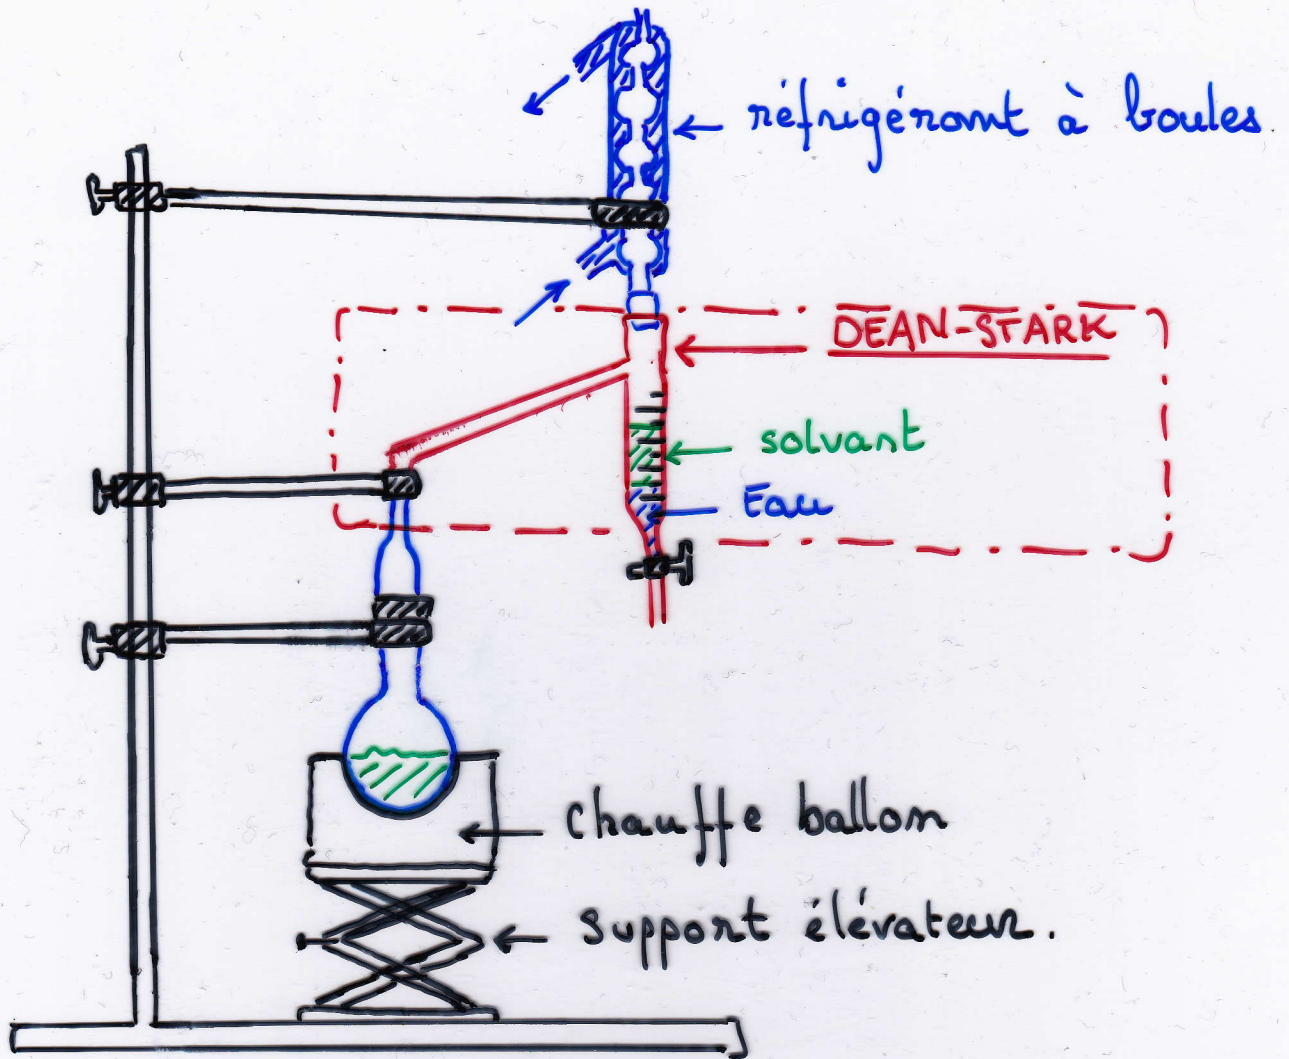 réfrigérant à boules
DEAN-STARK
solvant
Eau
chauffe ballon
support élévateur.